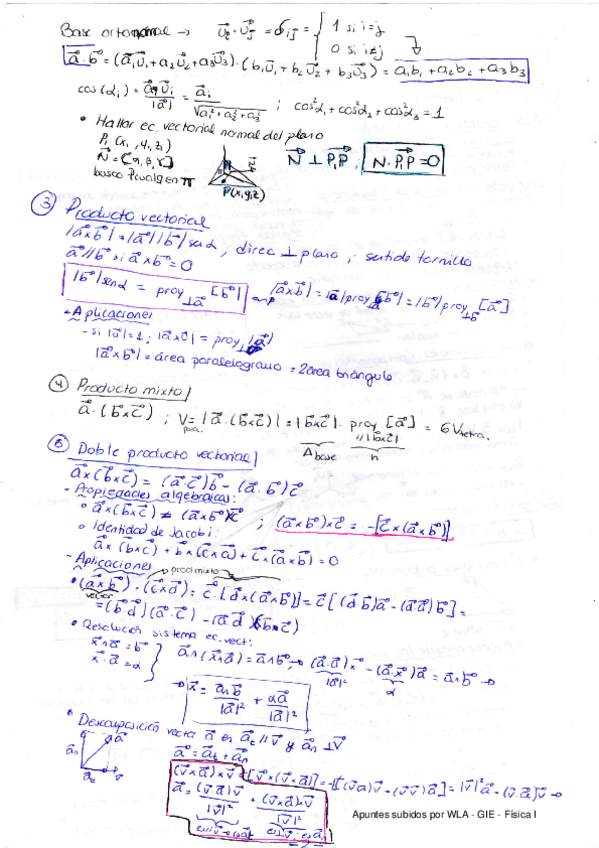 Base ortonormal → u⃗i · u⃗j = δij = { 1 si i=j
0 si i≠j
a⃗·b⃗ = (a1u⃗1 + a2u⃗2 + a3u⃗3) · (b1u⃗1 + b2u⃗2 + b3u⃗3) = a1b1 + a2b2 + a3b3
cos(αi) = a⃗·u⃗i / |a⃗| = ai / √(a1² + a2² + a3²) ; cos²α1 + cos²α2 + cos²α3 = 1
• Hallar ec. vectorial normal del plano
P1 (x1, y1, z1)
N⃗ = (α, β, γ)
busco P cualq en π
P(x,y,z)
N⃗ ⊥ P1P , N⃗ · P1P = 0
③ Producto vectorial
|a⃗×b⃗| = |a⃗||b⃗| senα , direc ⊥ plano , sentido tornillo
a⃗//b⃗ si a⃗×b⃗ = 0
|b⃗| senα = proy⊥a⃗ [b⃗] → |a⃗×b⃗| = |a⃗| proy⊥a⃗ [b⃗] = |b⃗| proy⊥b⃗ [a⃗]
- Aplicaciones
- si |a⃗| = 1 ; |a⃗×c⃗| = proy⊥
|a⃗×b⃗| = área paralelogramo = 2área triángulo
④ Producto mixto
a⃗·(b⃗×c⃗) ; V = |a⃗·(b⃗×c⃗)| = |b⃗×c⃗| · proy//|b×c| [a⃗] = 6Vtetra.
para.
Abase h
⑤ Doble producto vectorial
a⃗×(b⃗×c⃗) = (a⃗·c⃗)b⃗ - (a⃗·b⃗)c⃗
- Propiedades algebraicas:
• a⃗×(b⃗×c⃗) ≠ (a⃗×b⃗)×c⃗ ; (a⃗×b⃗)×c⃗ = -[c⃗×(a⃗×b⃗)]
• Identidad de Jacobi:
a⃗×(b×c) + b×(c⃗×a⃗) + c⃗×(a⃗×b⃗) = 0
- Aplicaciones
prod mixto
• (a⃗×b⃗)·(c⃗×d⃗) = c⃗·[d⃗×(a⃗×b⃗)] = c⃗[(d⃗·b⃗)a⃗ - (d⃗·a⃗)b⃗] =
vector
= (b⃗·d⃗)(a⃗·c⃗) - (a⃗·d⃗)(b⃗·c⃗)
• Resolución sistema ec. vect:
x⃗∧a⃗ = b⃗
x⃗·a⃗ = α
} a⃗∧(x⃗∧a⃗) = a⃗∧b⃗ → (a⃗·a⃗)x⃗ - (a⃗·x⃗)a⃗ = a⃗∧b⃗ →
|a⃗|² α
→ x⃗ = a⃗∧b⃗ / |a⃗|² + αa⃗ / |a⃗|²
• Descomposición vector a⃗ en a⃗t // v⃗ y a⃗n ⊥ v⃗
a⃗ = a⃗t + a⃗n
(v⃗×a⃗)×v⃗ = -[v⃗×(v⃗×a⃗)] = -[(v⃗·a⃗)v⃗ - (v⃗·v⃗)a⃗] = |v⃗|²a⃗ - (v⃗·a⃗)v⃗ →
a⃗ = (v⃗·a⃗)v⃗ / |v⃗|² + (v⃗×a⃗)×v⃗ / |v⃗|²
Apuntes subidos por WLA - GIE - Física I